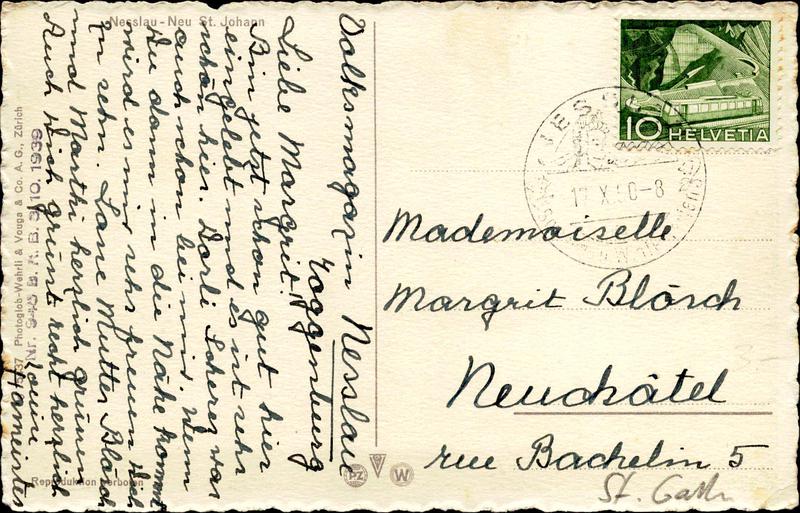 Nesslau - Neu St. Johann
Volksmagazin Nesslau
Toggenburg
Liebe Margrit!
Bin jetzt schon gut hier
eingelebt und es ist sehr
schön hier. Dorli Scherer war
auch schon bei mir. Wenn
Du dann in die Nähe kommst
wird es mir sehr freuen Dich
zu sehn. Lane Mutter Blösch
und Marthi herzlich grüssen
Auch Dich grüsst recht herzlich
Louise
Hameister
37 Photoglob-Wehrli & Vouga & Co. A. G., Zürich
Nr. 945 B. R. B. 3. 10. 1939
Reproduktion verboten
PZ
W
10 HELVETIA
NESSLAU
17.X.50-8
Mademoiselle
Margrit Blösch
Neuchâtel
rue Bachelin 5
St. Gall